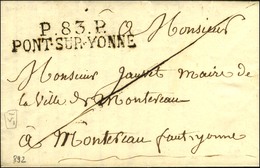 P.83.P.
PONT-SUR-YONNE
A Monsieur
Monsieur Jauvet Maire de
la Ville de Montereau
à Montereau faut yonne
892